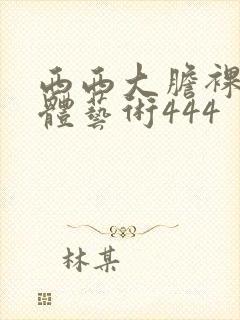 西西大膽裸
體藝術444
林某